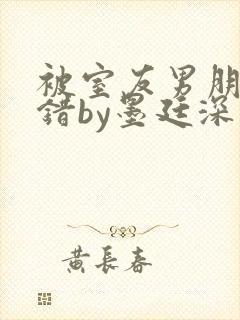 被室友男朋
错by墨廷深
黄長春